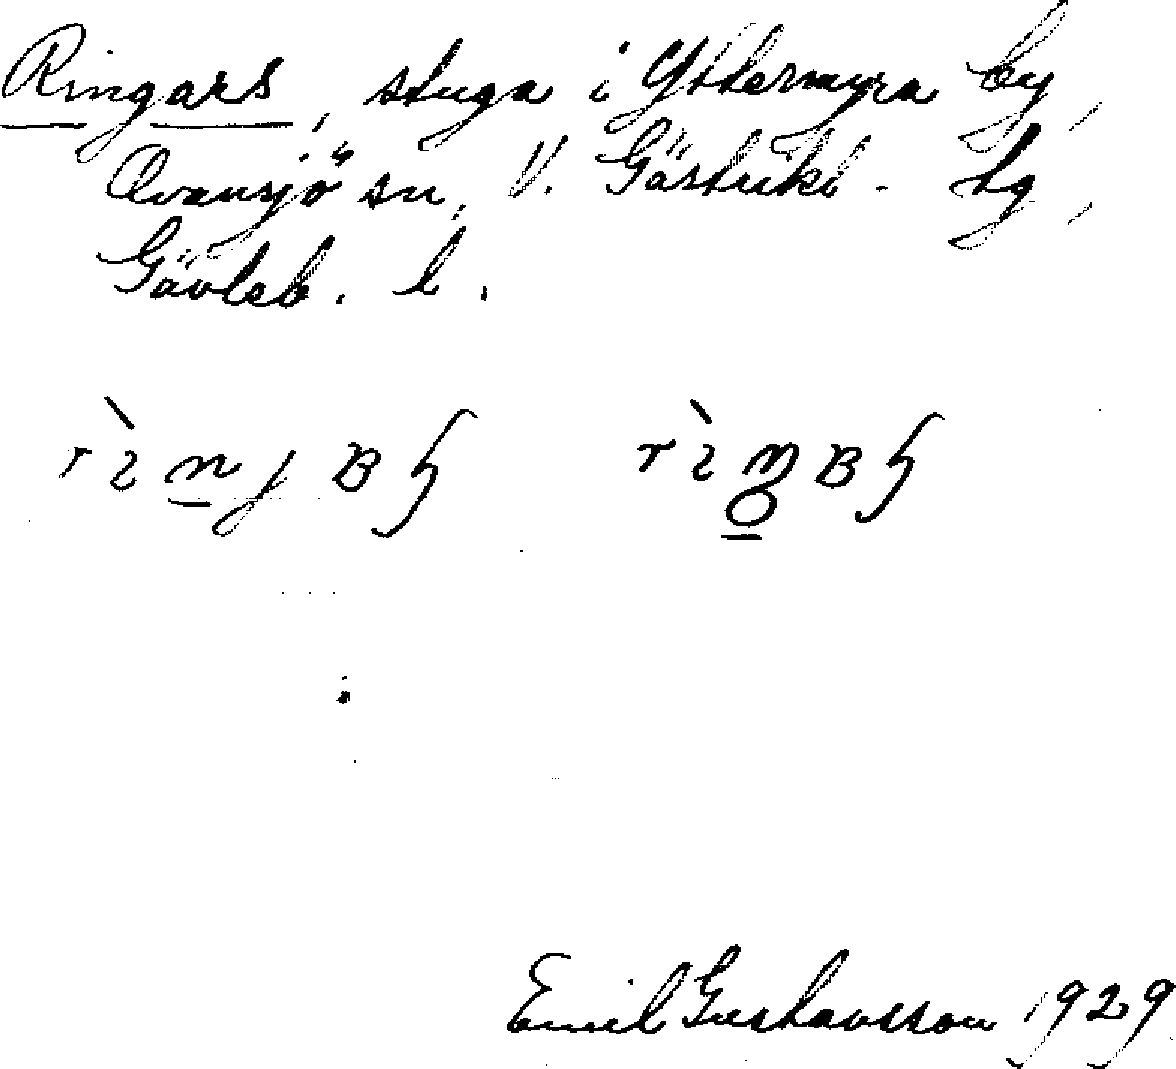 Ringars, stuga i Yttermyra by,
Ovansjö sn, V. Gästrikl. tg,
Gävleb. l.
Emil Gustavsson 1929